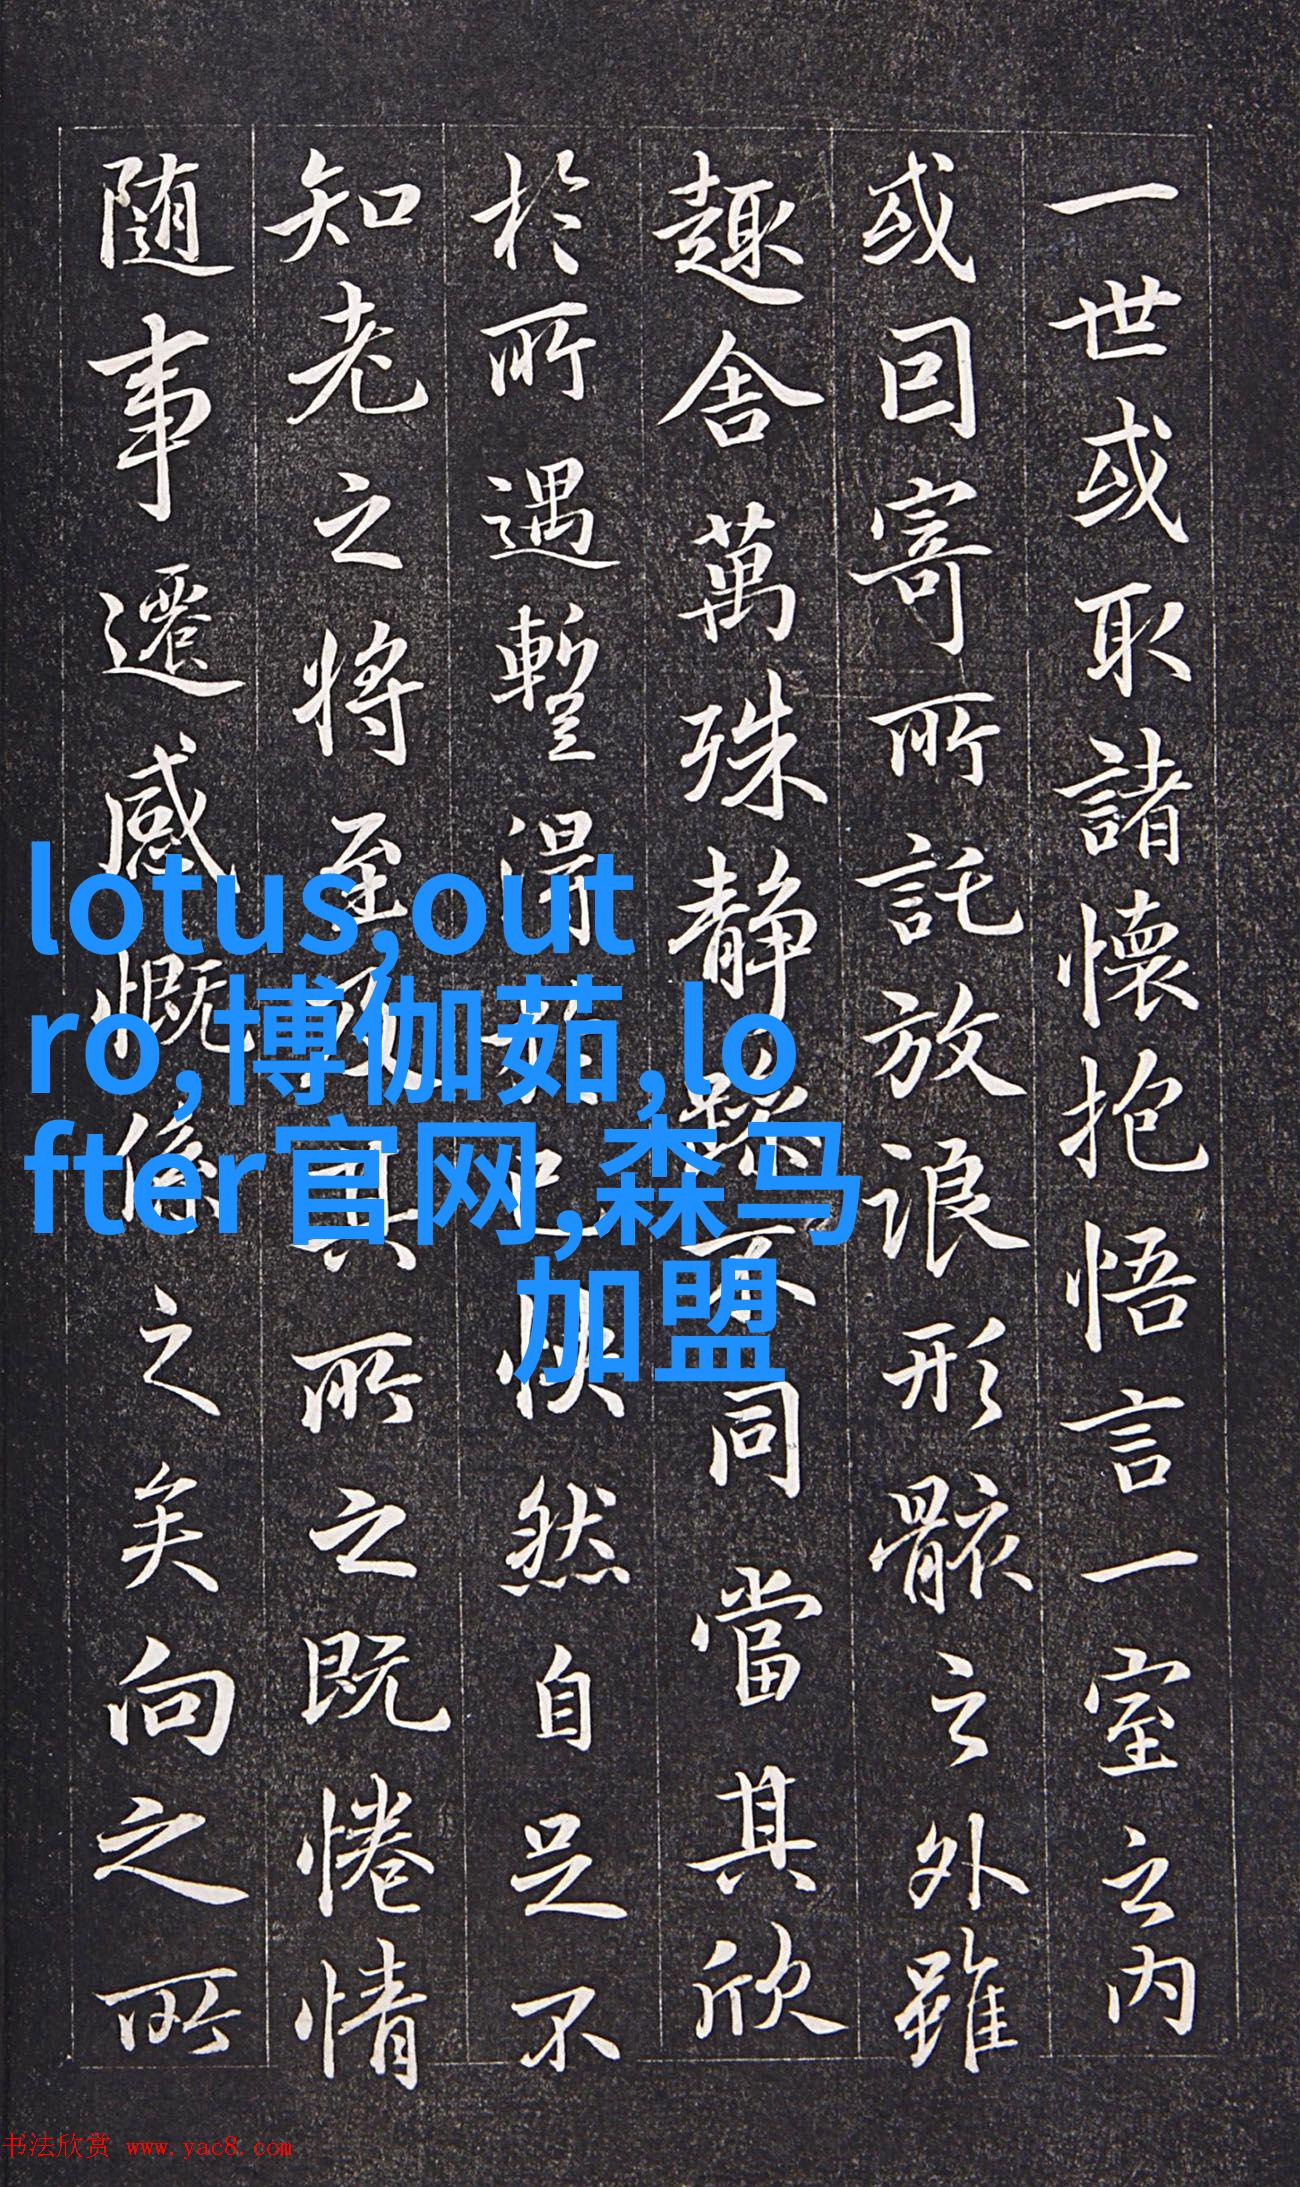 一世或取諸懷抱悟言一室之内
或因寄所託放浪形骸之外雖
趣舍萬殊静躁不同當其欣
於所遇暫得於己怏然自足不
知老之将至及其所之既惓情
随事遷感慨係之矣向之所
lotus,out
ro,博伽茹,lo
fter官网,森马
加盟
书法欣赏 www.yac8.com